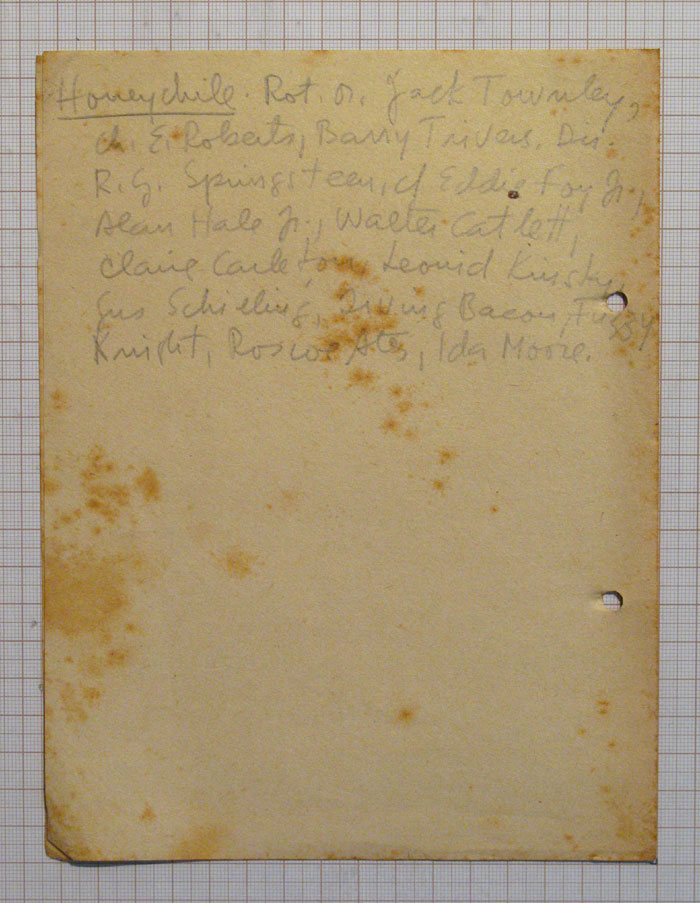 Honeychile. Rot. or. Jack Townley,
Ch. E. Roberts, Barry Trivers. Dir.
R. G. Springsteen, cf Eddie Foy Jr.,
Alan Hale Jr., Walter Catlett,
Claire Carleton, Leonid Kinsky,
Gus Schilling, Irving Bacon, Fuzzy
Knight, Roscoe Ates, Ida Moore.